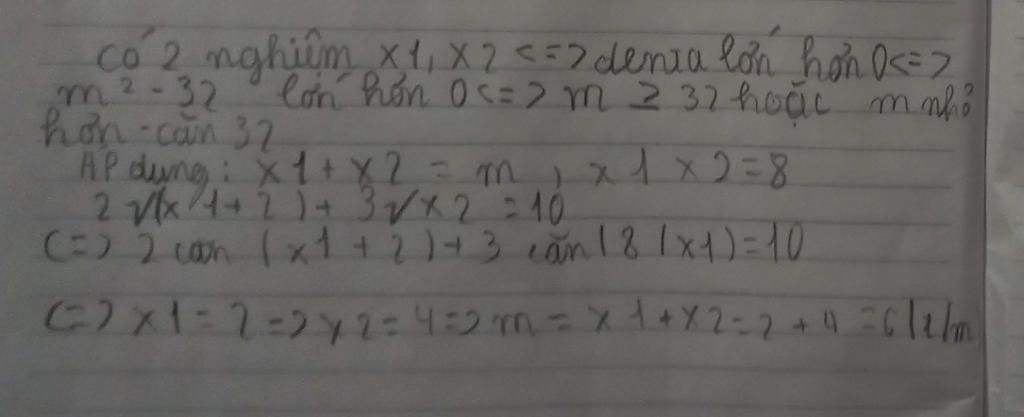 có 2 nghiệm x1, x2 <=> denta lớn hơn 0 <=>
m² - 32 lớn hơn 0 <=> m ≥ 32 hoặc m nhỏ
hơn - căn 32
AP dụng: x1 + x2 = m, x1 x2 = 8
2√(x1+2) + 3√x2 = 10
<=> 2 căn (x1 + 2) + 3 căn (8/x1) = 10
<=> x1 = 2 => x2 = 4 => m = x1 + x2 = 2 + 4 = 6 (t/m